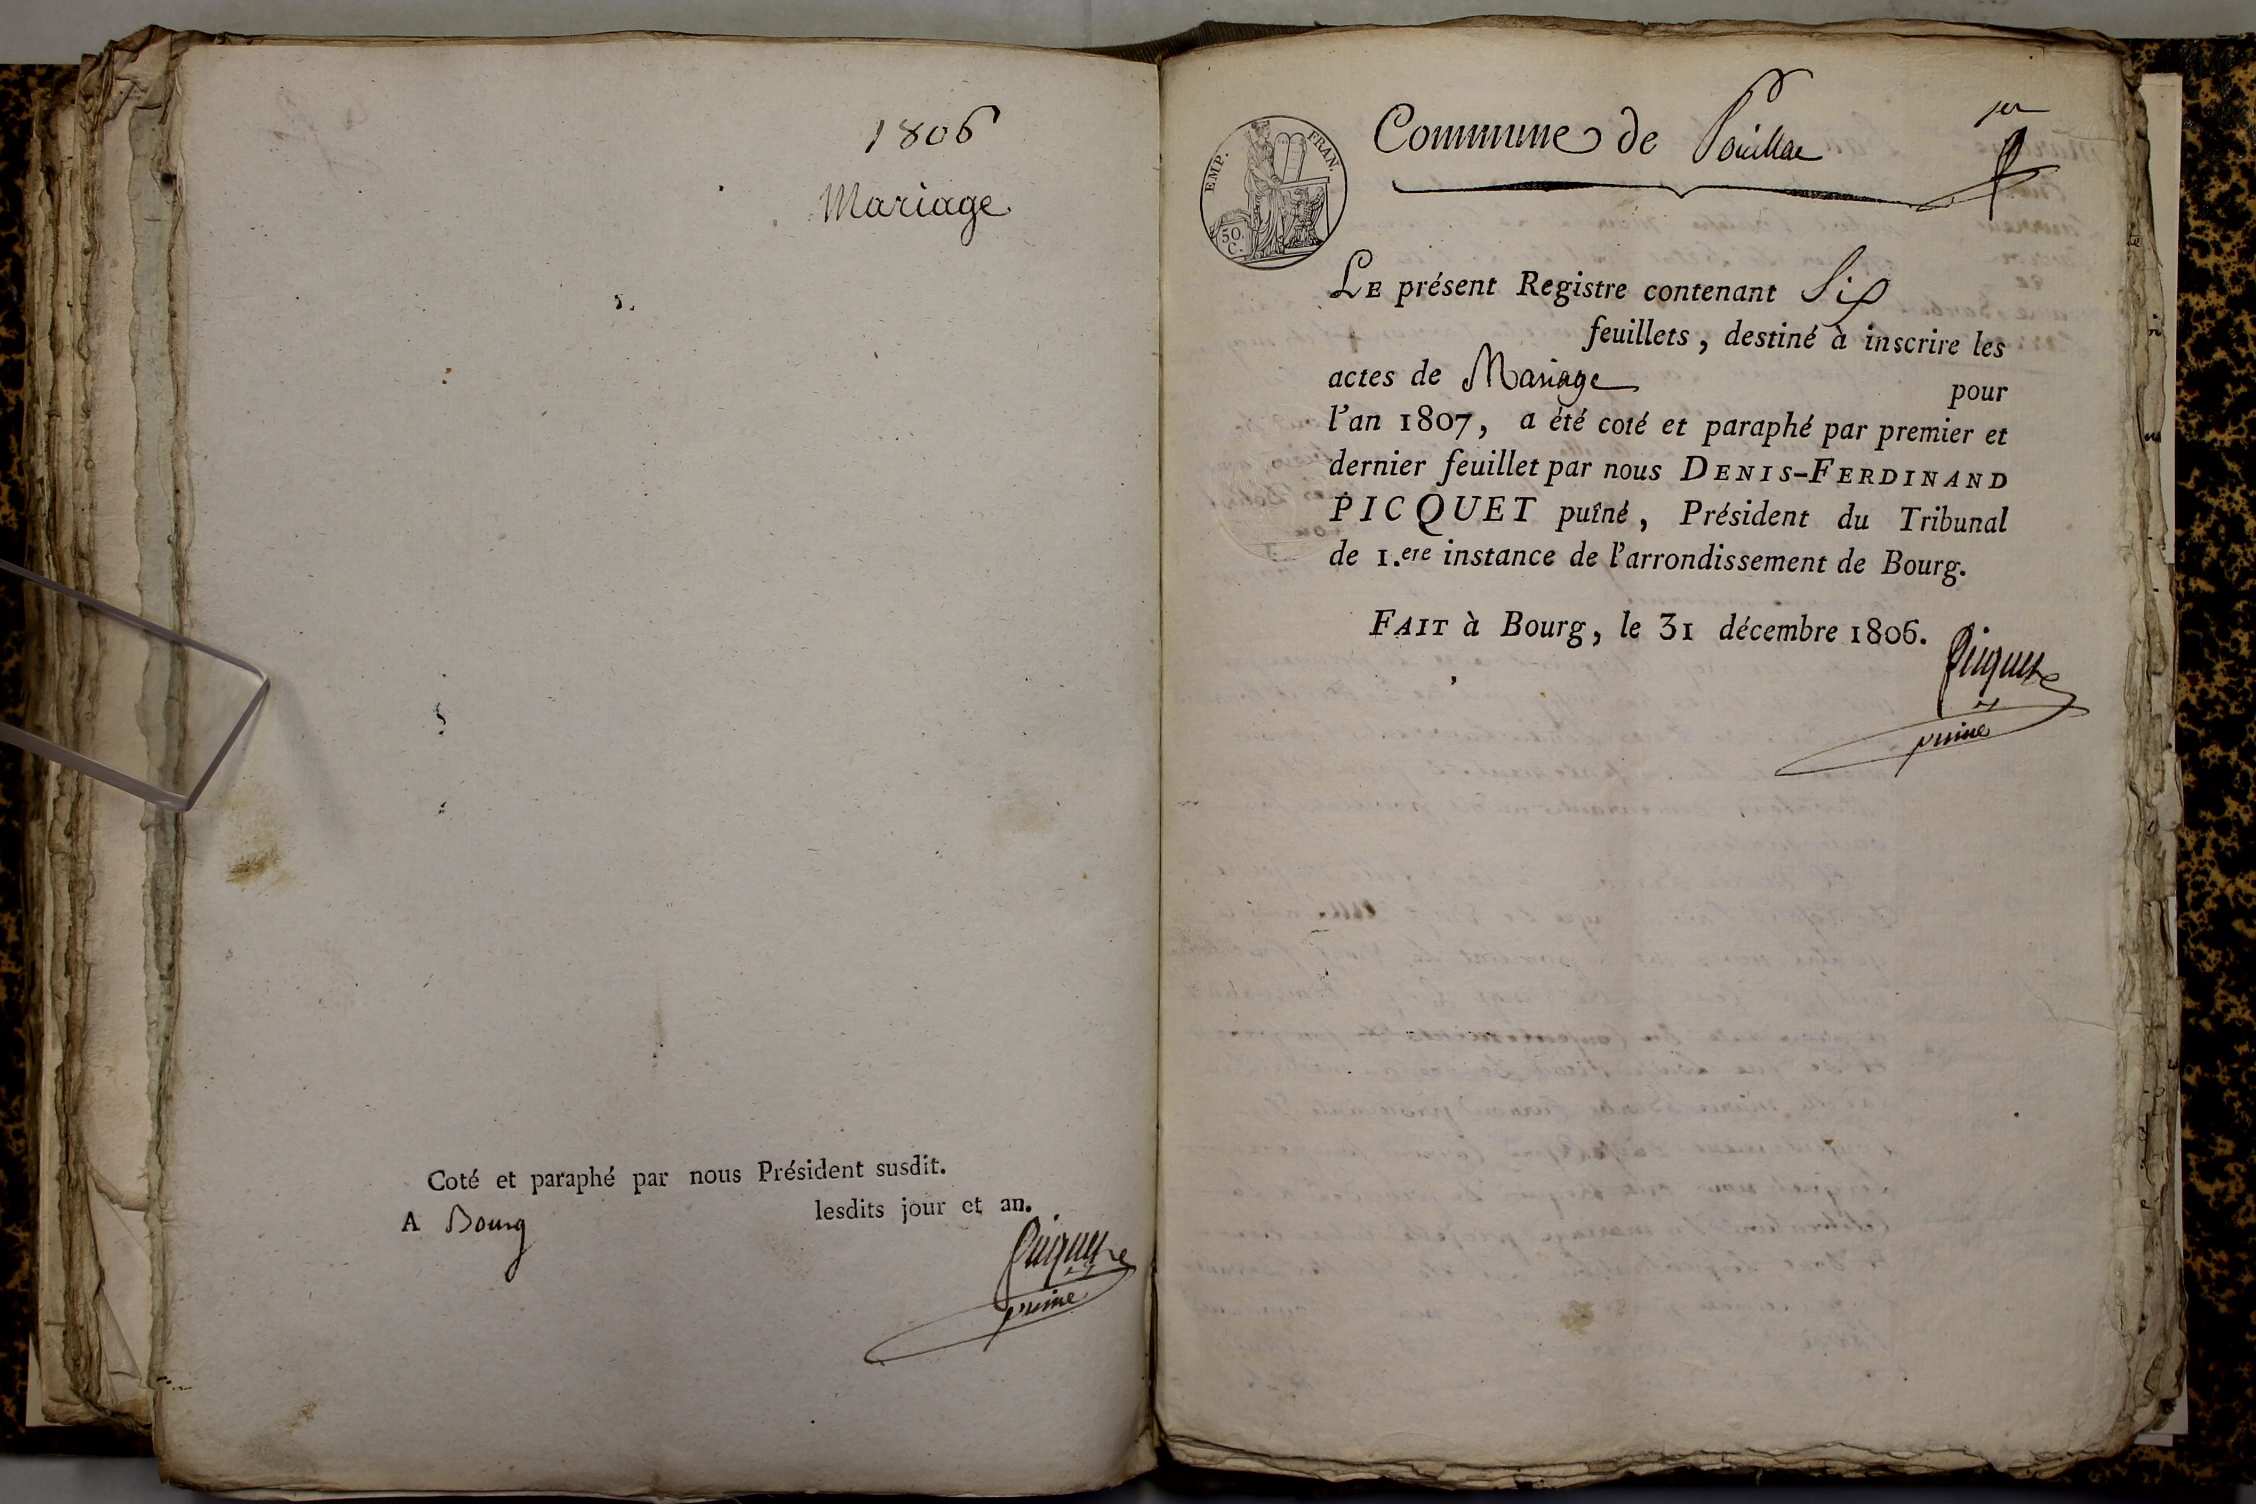 1806
Mariage
Coté et paraphé par nous Président susdit.
A Bourg lesdits jour et an.
Picquet
puiné
EMP. FRAN.
50
C.
Commune de Pouillac
1er
LE présent Registre contenant Six
feuillets, destiné à inscrire les
actes de Mariage pour
l'an 1807, a été coté et paraphé par premier et
dernier feuillet par nous DENIS-FERDINAND
PICQUET puîné, Président du Tribunal
de 1.ere instance de l'arrondissement de Bourg.
FAIT à Bourg, le 31 décembre 1806.
Picquet
puiné